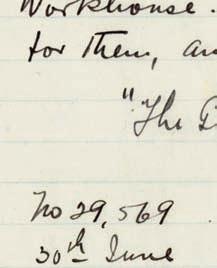 Workhouse.
for them, an
"The
No 29,569
30th June